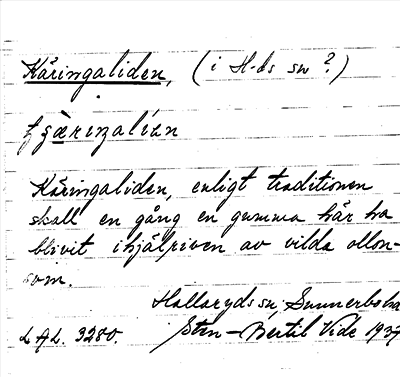 Käringaliden, (i H-ds sn ?)
Käringaliden, enligt traditionen
skall en gång en gumma här ha
blivit ihjälriven av vilda ollon-
som.
Hallaryds sn, Sunnerbo hd
L A L. 3280. Sten-Bertil Vide 1937